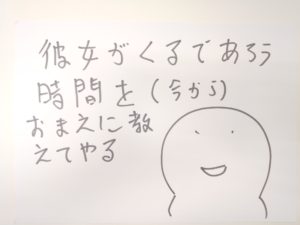 彼女がくるであろう
時間を(今から)
おまえに教
えてやる